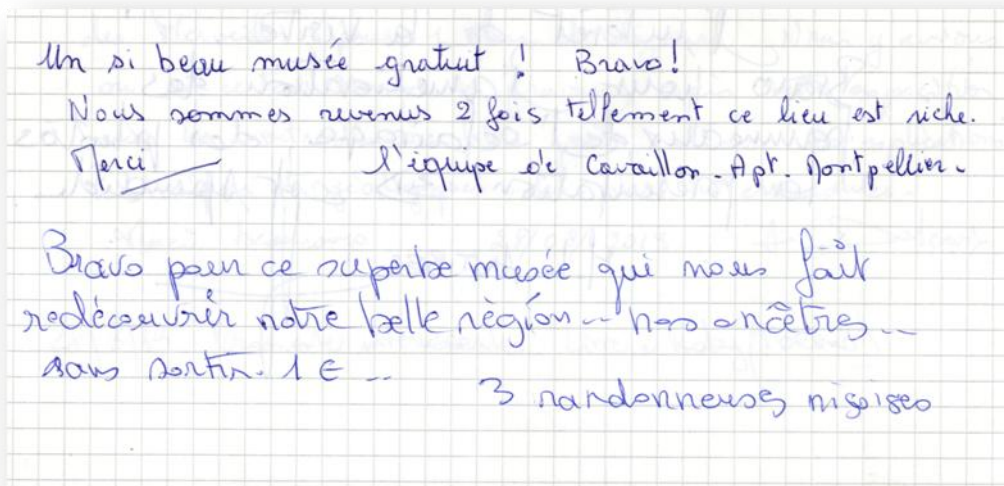 Un si beau musée gratuit ! Bravo!
Nous sommes revenus 2 fois tellement ce lieu est riche.
Merci l'équipe de Cavaillon. Apt. Montpellier.
Bravo pour ce superbe musée qui nous fait
redécouvrir notre belle région... nos ancêtres...
sans sortir 1 € ...
3 randonneuses niçoises